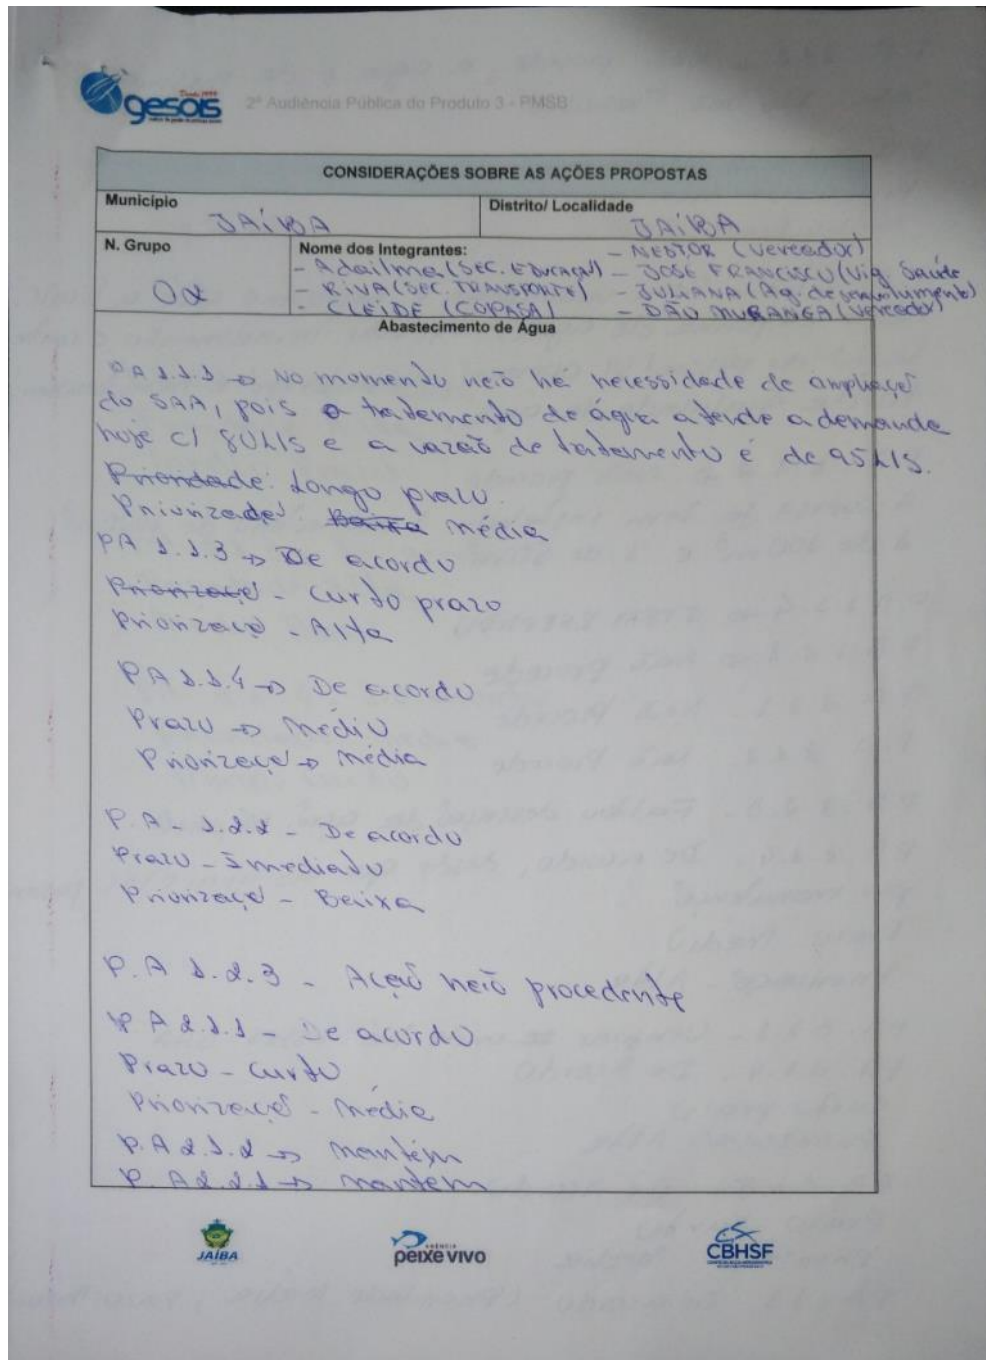 Desde 1999
gesois
2ª Audiência Pública do Produto 3 - PMSB
CONSIDERAÇÕES SOBRE AS AÇÕES PROPOSTAS
Município
JAÍBA
Distrito/ Localidade
JAÍBA
N. Grupo
02
Nome dos Integrantes:
- Adailma (SEC. EDUCAÇÃO)
- RIVA (SEC. TRANSPORTE)
- CLEIDE (COPASA)
- NESTOR (Vereador)
- JOSÉ FRANCISCO (Vig. Saúde
- JULIANA (Ag. desenvolvimento)
- DÃO MURANGA (Vereador)
Abastecimento de Água
PA 1.1.1 → No momento não há necessidade de ampliaçã
do SAA, pois o tratamento de água atende a demanda
hoje c/ 80L/S e a vazão de tratamento é de 95L/S.
Prioridade: Longo prazo.
Priorizade: Baixa média
PA 1.1.3 → De acordo
Priorizaçã - curto prazo
Priorizaçã - Alta
PA 1.1.4 → De acordo
Prazo → médio
Priorizaçã → média
P.A - 1.2.2 - De acordo
Prazo - Imediato
Priorizaçã - Baixa
P.A 1.2.3 - Ação não procedente
PA 2.1.1 - De acordo
Prazo - curto
Priorizaçã - média
P.A 2.1.2 → mantém
P.A 2.2.1 → mantem
JAÍBA
AGÊNCIA
peixe vivo
CBHSF